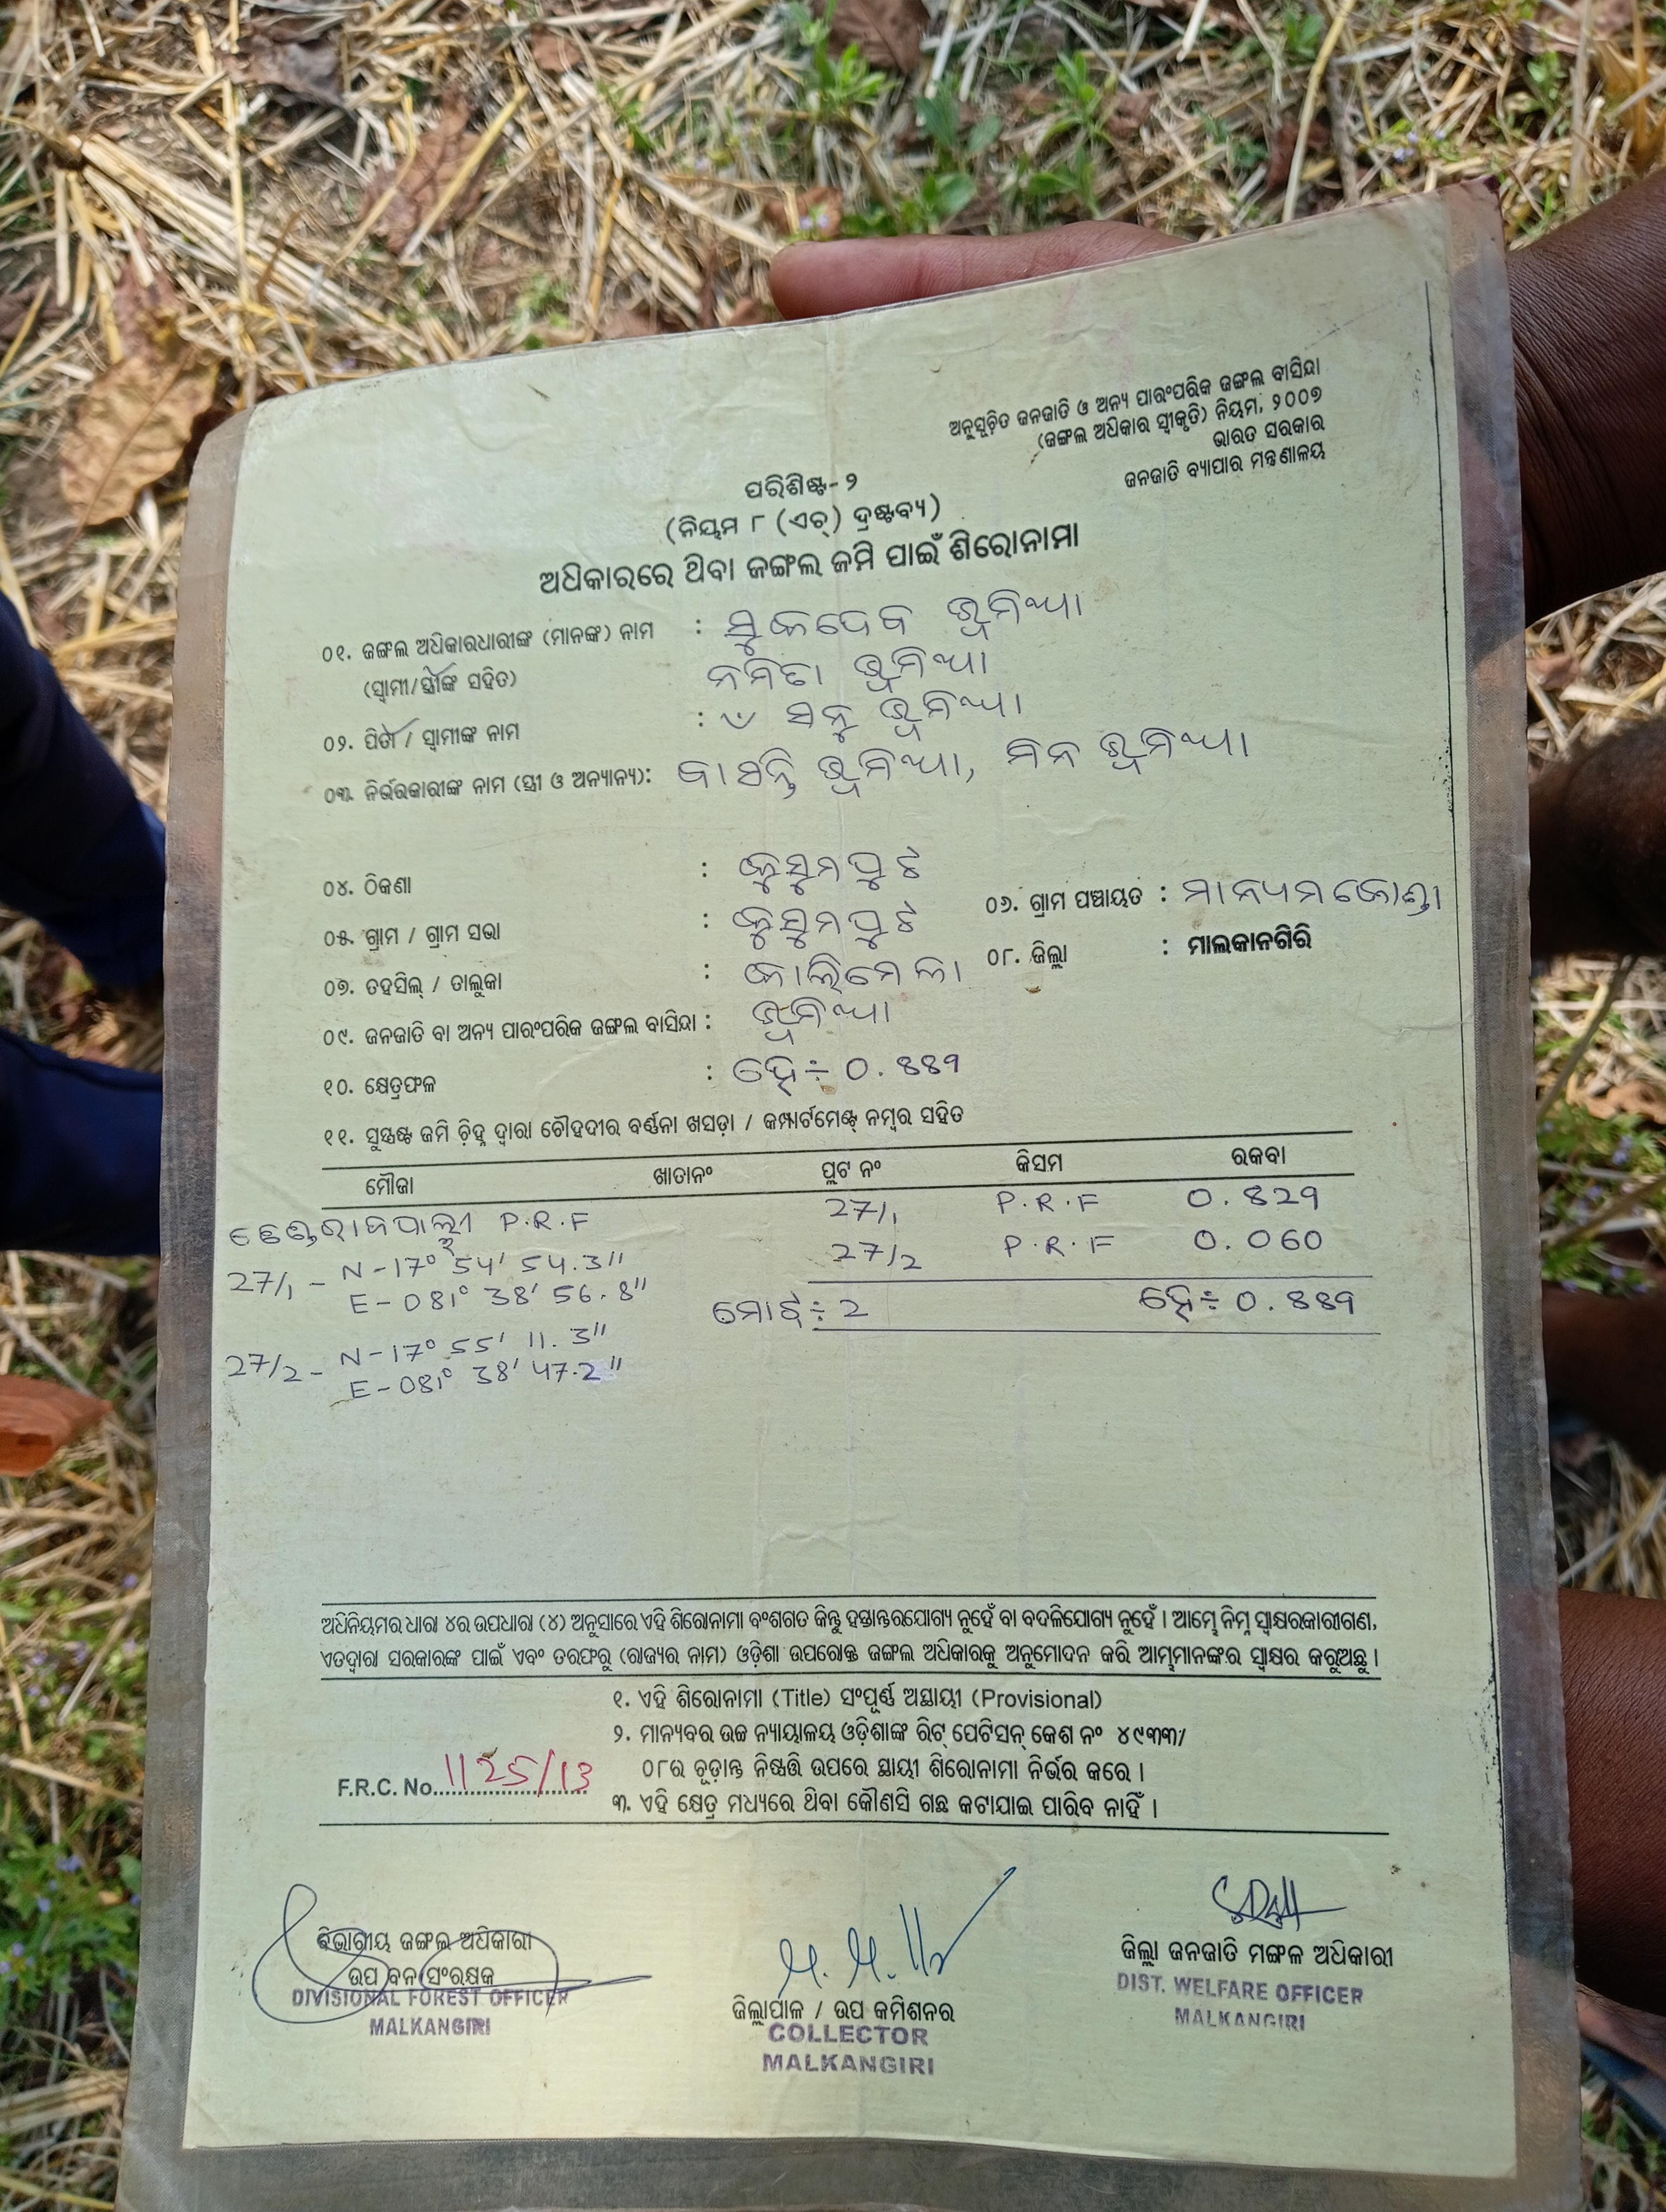 ଅନୁସୂଚିତ ଜନଜାତି ଓ ଅନ୍ୟ ପାରଂପରିକ ଜଙ୍ଗଲ ବାସିନ୍ଦା
(ଜଙ୍ଗଲ ଅଧିକାର ସ୍ୱୀକୃତି) ନିୟମ, ୨୦୦୭
ଭାରତ ସରକାର
ଜନଜାତି ବ୍ୟାପାର ମନ୍ତ୍ରଣାଳୟ
ପରିଶିଷ୍ଟ-୨
(ନିୟମ ୮ (ଏଚ୍) ଦ୍ରଷ୍ଟବ୍ୟ)
ଅଧିକାରରେ ଥିବା ଜଙ୍ଗଲ ଜମି ପାଇଁ ଶିରୋନାମା
୦୧. ଜଙ୍ଗଲ ଅଧିକାରଧାରୀଙ୍କ (ମାନଙ୍କ) ନାମ : ସୁକଦେବ ଭୂମିଆ
(ସ୍ୱାମୀ/ସ୍ତ୍ରୀଙ୍କ ସହିତ) ନମିତା ଭୂମିଆ
୦୨. ପିତା / ସ୍ୱାମୀଙ୍କ ନାମ : ସନୁ ଭୂମିଆ
୦୩. ନିର୍ଭରକାରୀଙ୍କ ନାମ (ସ୍ତ୍ରୀ ଓ ଅନ୍ୟାନ୍ୟ): ବାସନ୍ତି ଭୂମିଆ, ମିନ ଭୂମିଆ
୦୪. ଠିକଣା : କୁସୁମପୁଟ
୦୫. ଗ୍ରାମ / ଗ୍ରାମ ସଭା : କୁସୁମପୁଟ ୦୬. ଗ୍ରାମ ପଞ୍ଚାୟତ : ମାନ୍ୟମକୋଣ୍ଡା
୦୭. ତହସିଲ୍ / ତାଲୁକା : କାଲିମେଳା ୦୮. ଜିଲ୍ଲା : ମାଲକାନଗିରି
୦୯. ଜନଜାତି ବା ଅନ୍ୟ ପାରଂପରିକ ଜଙ୍ଗଲ ବାସିନ୍ଦା : ଭୂମିଆ
୧୦. କ୍ଷେତ୍ରଫଳ : ହେ÷ 0.889
୧୧. ସୁସ୍ପଷ୍ଟ ଜମି ଚ଼ିହ୍ନ ଦ୍ୱାରା ଚୌହଦୀର ବର୍ଣ୍ଣନା ଖସଡ଼ା / କମ୍ପାର୍ଟମେଣ୍ଟ୍ ନମ୍ବର ସହିତ
ମୌଜା ଖାତାନଂ ପ୍ଲଟ ନଂ କିସମ ରକବା
P.R.F 27/1 P.R.F 0.829
27/1 - N-17° 54' 54.3" 27/2 P.R.F 0.060
E-081° 38' 56.8"
ମୋଟ÷ 2 ହେ÷ 0.889
27/2 - N-17° 55' 11.3"
E-081° 38' 47.2"
ଅଧିନିୟମର ଧାରା ୪ର ଉପଧାରା (୪) ଅନୁସାରେ ଏହି ଶିରୋନାମା ବଂଶଗତ କିନ୍ତୁ ହସ୍ତାନ୍ତରଯୋଗ୍ୟ ନୁହେଁ ବା ବଦଳିଯୋଗ୍ୟ ନୁହେଁ । ଆମ୍ଭେ ନିମ୍ନ ସ୍ୱାକ୍ଷରକାରୀଗଣ,
ଏତଦ୍ୱାରା ସରକାରଙ୍କ ପାଇଁ ଏବଂ ତରଫରୁ (ରାଜ୍ୟର ନାମ) ଓଡ଼ିଶା ଉପରୋକ୍ତ ଜଙ୍ଗଲ ଅଧିକାରକୁ ଅନୁମୋଦନ କରି ଆମ୍ଭମାନଙ୍କର ସ୍ୱାକ୍ଷର କରୁଅଛୁ ।
୧. ଏହି ଶିରୋନାମା (Title) ସଂପୂର୍ଣ୍ଣ ଅସ୍ଥାୟୀ (Provisional)
୨. ମାନ୍ୟବର ଉଚ୍ଚ ନ୍ୟାୟାଳୟ ଓଡ଼ିଶାଙ୍କ ରିଟ୍ ପେଟିସନ୍ କେଶ ନଂ ୪୯୩୩/
୦୮ର ଚୂଡ଼ାନ୍ତ ନିଷ୍ପତ୍ତି ଉପରେ ସ୍ଥାୟୀ ଶିରୋନାମା ନିର୍ଭର କରେ ।
F.R.C. No. 1125/13
୩. ଏହି କ୍ଷେତ୍ର ମଧ୍ୟରେ ଥିବା କୌଣସି ଗଛ କଟାଯାଇ ପାରିବ ନାହିଁ ।
ବିଭାଗୀୟ ଜଙ୍ଗଲ ଅଧିକାରୀ
ଉପ ବନ ସଂରକ୍ଷକ
DIVISIONAL FOREST OFFICER
MALKANGIRI
ଜିଲ୍ଲାପାଳ / ଉପ କମିଶନର
COLLECTOR
MALKANGIRI
ଜିଲ୍ଲା ଜନଜାତି ମଙ୍ଗଳ ଅଧିକାରୀ
DIST. WELFARE OFFICER
MALKANGIRI